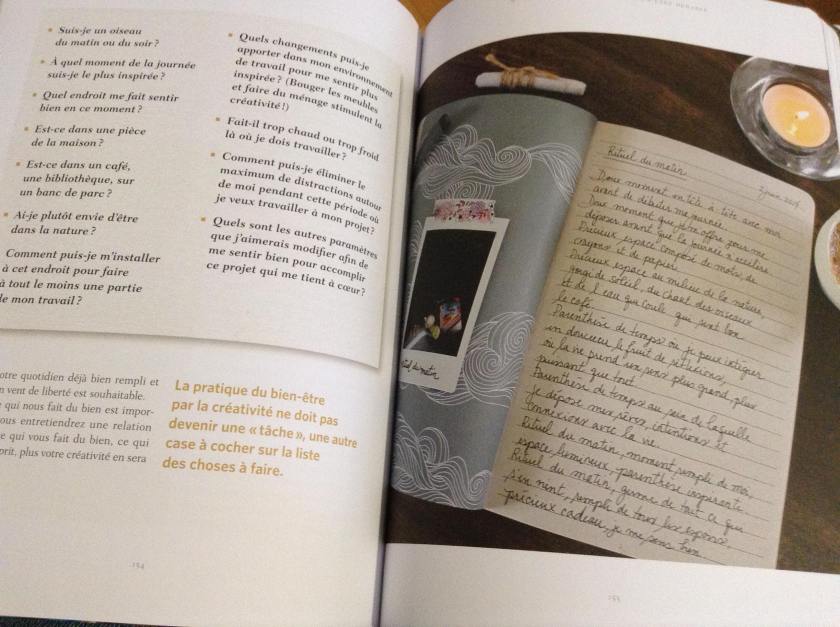 • Suis-je un oiseau
du matin ou du soir ?
• À quel moment de la journée
suis-je le plus inspirée ?
• Quel endroit me fait sentir
bien en ce moment ?
• Est-ce dans une pièce
de la maison ?
• Est-ce dans un café,
une bibliothèque, sur
un banc de parc ?
• Ai-je plutôt envie d'être
dans la nature ?
Comment puis-je m'installer
à cet endroit pour faire
à tout le moins une partie
de mon travail ?
• Quels changements puis-je
apporter dans mon environnement
de travail pour me sentir plus
inspirée ? (Bouger les meubles
et faire du ménage stimulent la
créativité !)
• Fait-il trop chaud ou trop froid
là où je dois travailler ?
• Comment puis-je éliminer le
maximum de distractions autour
de moi pendant cette période où
je veux travailler à mon projet ?
• Quels sont les autres paramètres
que j'aimerais modifier afin de
me sentir bien pour accomplir
ce projet qui me tient à cœur ?
otre quotidien déjà bien rempli et
n vent de liberté est souhaitable.
e qui nous fait du bien est impor-
ous entretiendrez une relation
e qui vous fait du bien, ce qui
prit, plus votre créativité en sera
La pratique du bien-être
par la créativité ne doit pas
devenir une « tâche », une autre
case à cocher sur la liste
des choses à faire.
154
Rituel du matin
Doux moment en tête à tête avec moi
avant de débuter ma journée.
Doux moment que je m'offre pour me
déposer avant que la journée s'accélère.
Précieux espace composé de mots, de
crayons et de papier.
Précieux espace au milieu de la nature,
de soleil, du chant des oiseaux
et de l'eau qui coule qui sent bon
le café.
Parenthèse de temps où je peux intégrer
en douceur le fruit de réflexions,
où la vie prend un sens plus grand, plus
puissant que tout.
Parenthèse de temps au sein de laquelle
je dépose mes rêves, intentions et
connexions avec la vie.
Rituel du matin, moment rempli de moi,
espace lumineux, parenthèse inspirante.
Rituel du matin, germe de tout ce qui
s'en vient, remplie de tous les espoirs,
précieux cadeau, je me sens bien.
rituel du matin
155